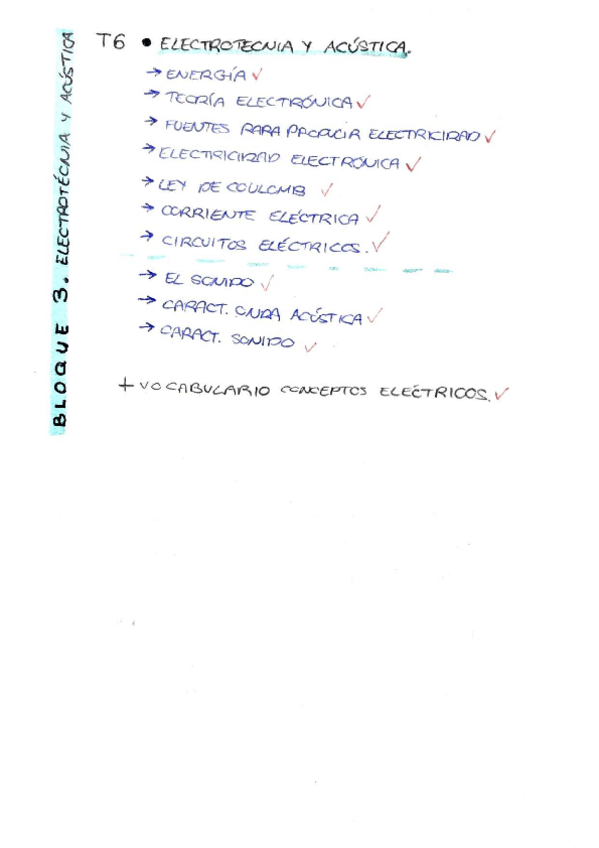 BLOQUE 3. ELECTROTÉCNIA Y ACÚSTICA
T6 • ELECTROTECNIA Y ACÚSTICA.
→ ENERGÍA ✓
→ TEORÍA ELECTRÓNICA ✓
→ FUENTES PARA PRODUCIR ELECTRICIDAD ✓
→ ELECTRICIDAD ELECTRÓNICA ✓
→ LEY DE COULOMB ✓
→ CORRIENTE ELÉCTRICA ✓
→ CIRCUITOS ELÉCTRICOS. ✓
→ EL SONIDO ✓
→ CARACT. ONDA ACÚSTICA ✓
→ CARACT. SONIDO ✓
+ VOCABULARIO CONCEPTOS ELÉCTRICOS. ✓